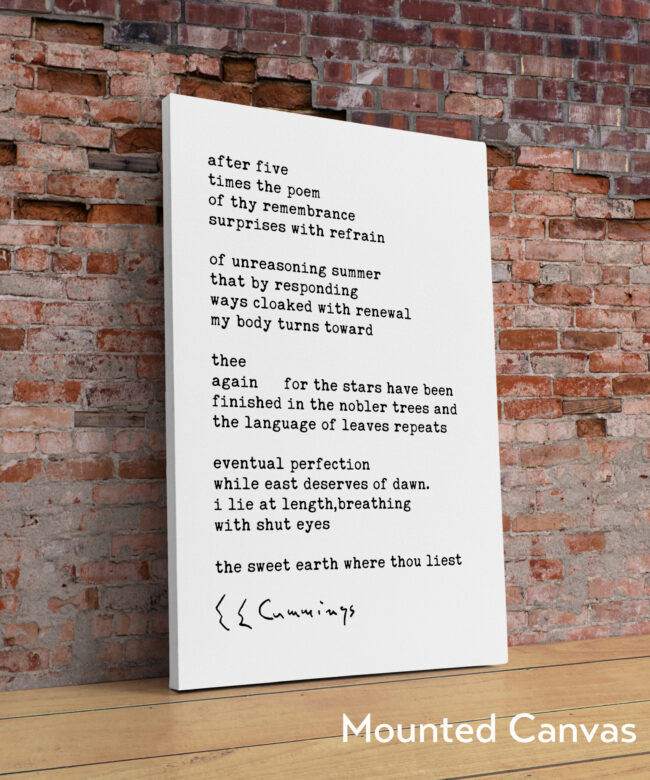 after five
times the poem
of thy remembrance
surprises with refrain

of unreasoning summer
that by responding
ways cloaked with renewal
my body turns toward

thee
again   for the stars have been
finished in the nobler trees and
the language of leaves repeats

eventual perfection
while east deserves of dawn.
i lie at length,breathing
with shut eyes

the sweet earth where thou liest
E E Cummings
Mounted Canvas